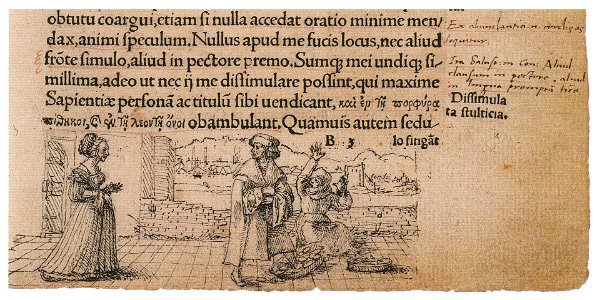 obtutu coargui, etiam si nulla accedat oratio minime men
dax, animi speculum. Nullus apud me fucis locus, nec aliud
frōte simulo, aliud in pectore premo. Sumq; mei undiq; si
millima, adeo ut nec ij me dissimulare possint, qui maxime
Sapientiæ personā ac titulū sibi uendicant, καὶ ἐν τῇ πορφύρᾳ
πίθηκοι, καὶ ἐν τῇ λεοντῇ ὄνοι obambulant. Quamuis autem sedu
B 3 lo fingāt
Ex abundantia n. cordis os
loquitur.
In Salust. in Con: Aliud
clausum in pectore, aliud
in lingua
Dissimula
ta stulticia.